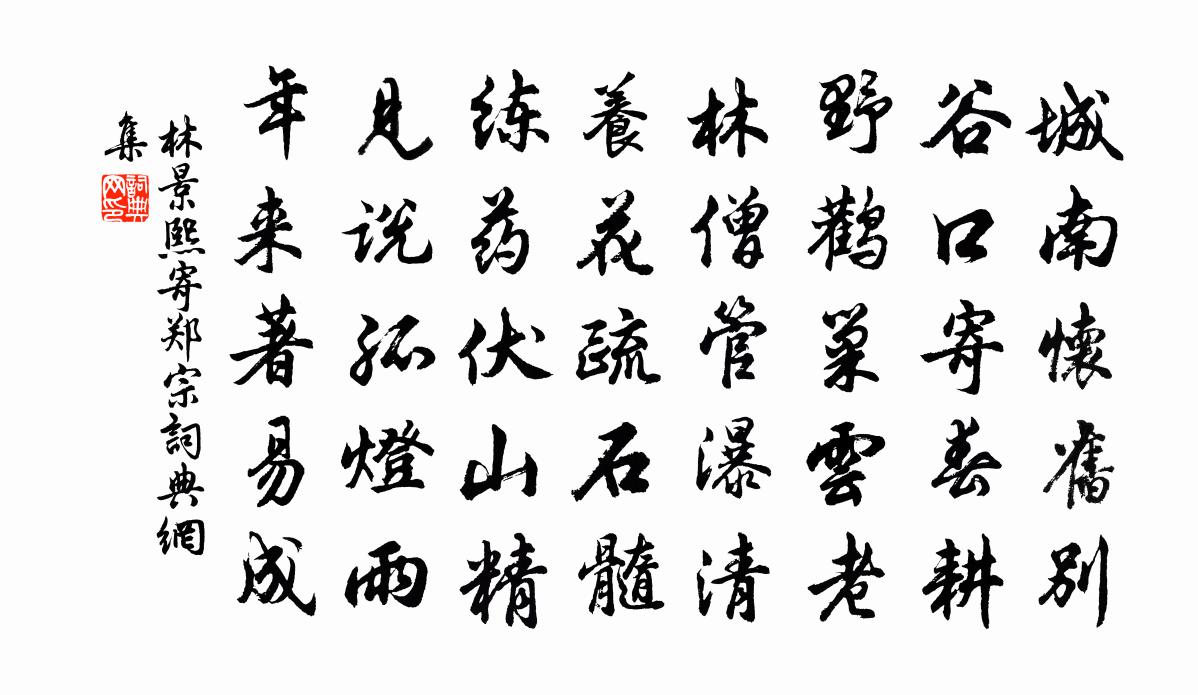 城南懷舊別
谷口寄春耕
野鸛巢雲老
林僧管瀑清
養花疏石髓
练药伏山精
見说孤燈雨
年来著易成
林景熙寄郑宗詞典網
集
詞典
网印